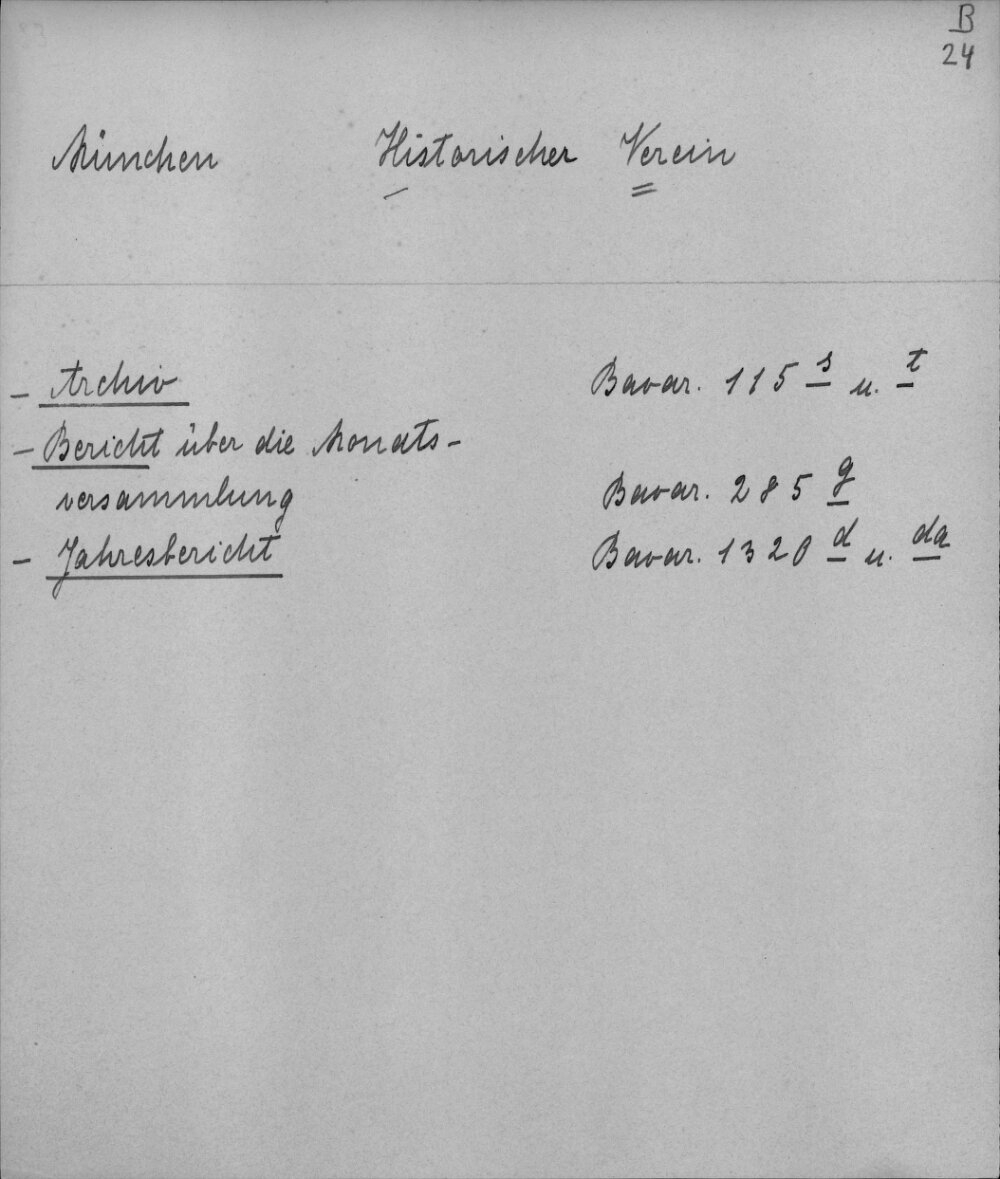 B
24
München Historischer Verein
- Archiv Bavar. 115 s u. t
- Bericht über die Monats-
versammlung Bavar. 285 g
- Jahresbericht Bavar. 1320 d u. da